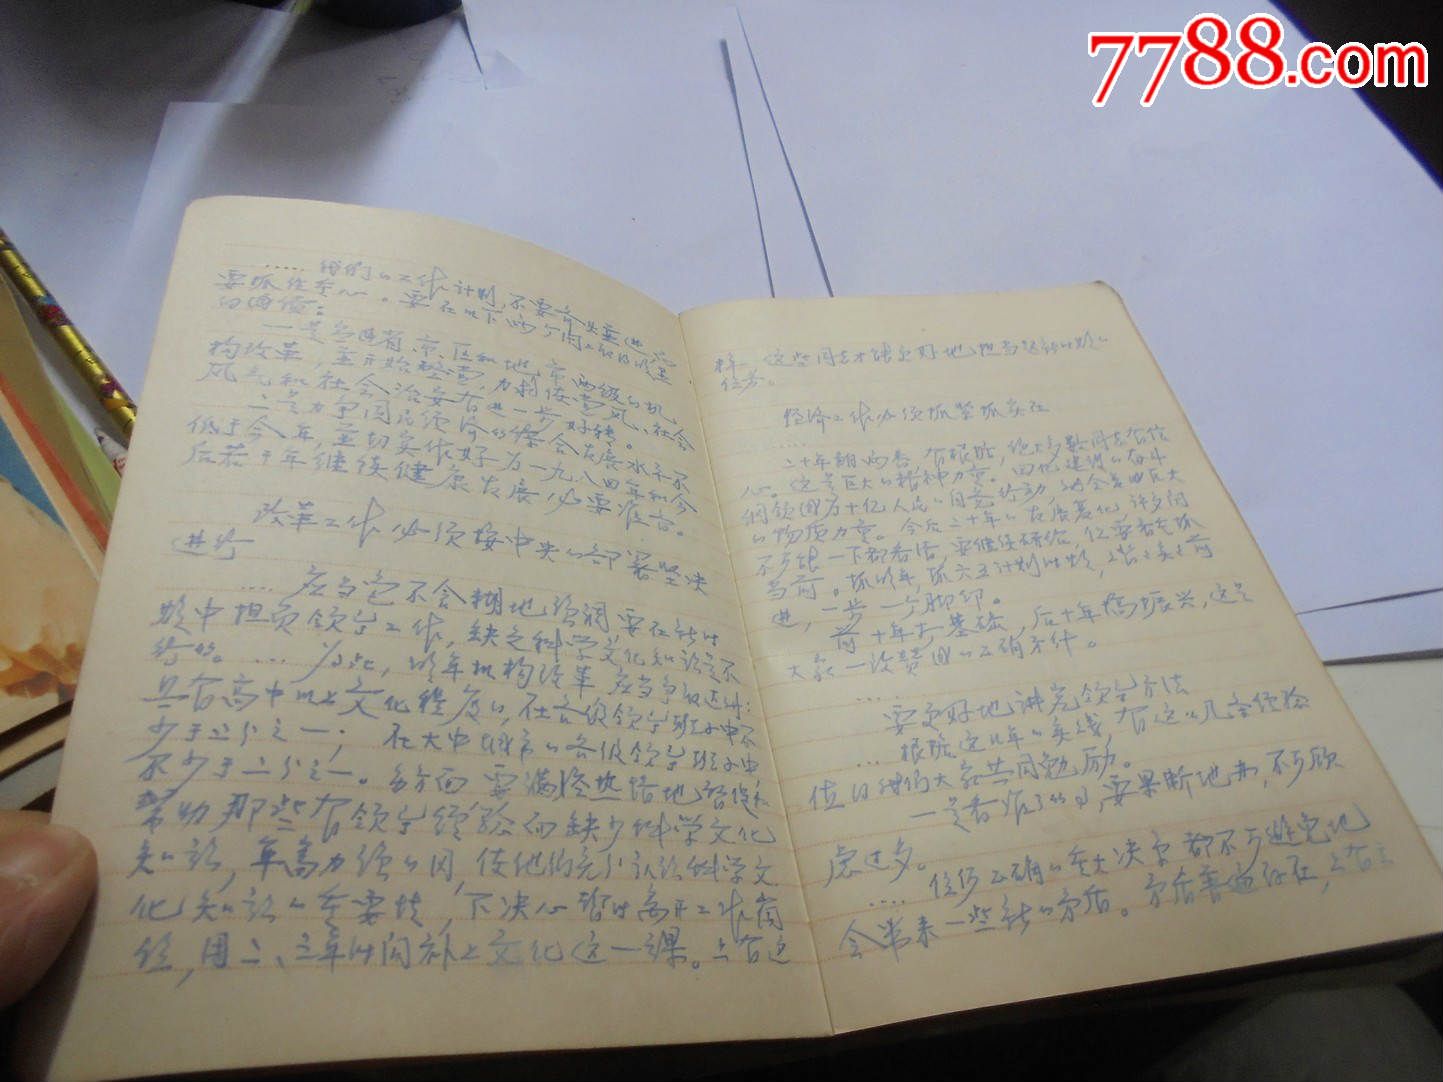 7788.com
..... 我们的工作计划,不要齐头并进,
要抓住重心。要在以下两个问题上
一是各省、市、区和地、市两级的机
构改革,并开始整党,力争使党风、社会
风气和社会治安有进一步好转。
二是力争国民经济的综合发展水平不
低于今年,并切实做好为一九八四年和今
后若干年继续健康发展必要准备。
改革工作必须按中央的部署坚决
进行
.... 应当毫不含糊地强调要在新时
期中担负领导工作,缺乏科学文化知识是不
行的。.... 为此,明年机构改革应当争取达到:
具有高中以上文化程度的,在县级领导班子中不
少于三分之一;在大中城市的各级领导班子中
不少于二分之一。多方面要满腔热情地
帮助那些有领导经验而缺少科学文化
知识,年富力强的同,使他们充分认识科学文
化知识的重要性,下决心暂时离开工作岗
位,用二、三年时间补上文化这一课。只有这
样,这些同志才能更好地担当起新的
任务。
经济工作必须抓紧抓实在
.....
二十年翻两番,有根据,绝大多数同志有信
心。这是巨大的精神力量。四化建设的奋斗
纲领成为十亿人民的自觉行动
的物质力量。今后二十年的发展变化,许多问
不可能一下都看活,要继续研究,但要首先抓
当前。抓明年,抓六五计划时期,
进,一步一个脚印。
前十年打基础,后十年搞振兴,这是
大家一致赞成的正确方针。
....
要更好地讲究领导方法
... 根据这几年的实践,有这么几条经验
值得我们大家共同勉励。
一是看准了的,要果断地办,不可顾
虑过多。
.... 任何正确的重大决定都不可避免地
会带来一些新的矛盾。矛盾普遍存在,只有